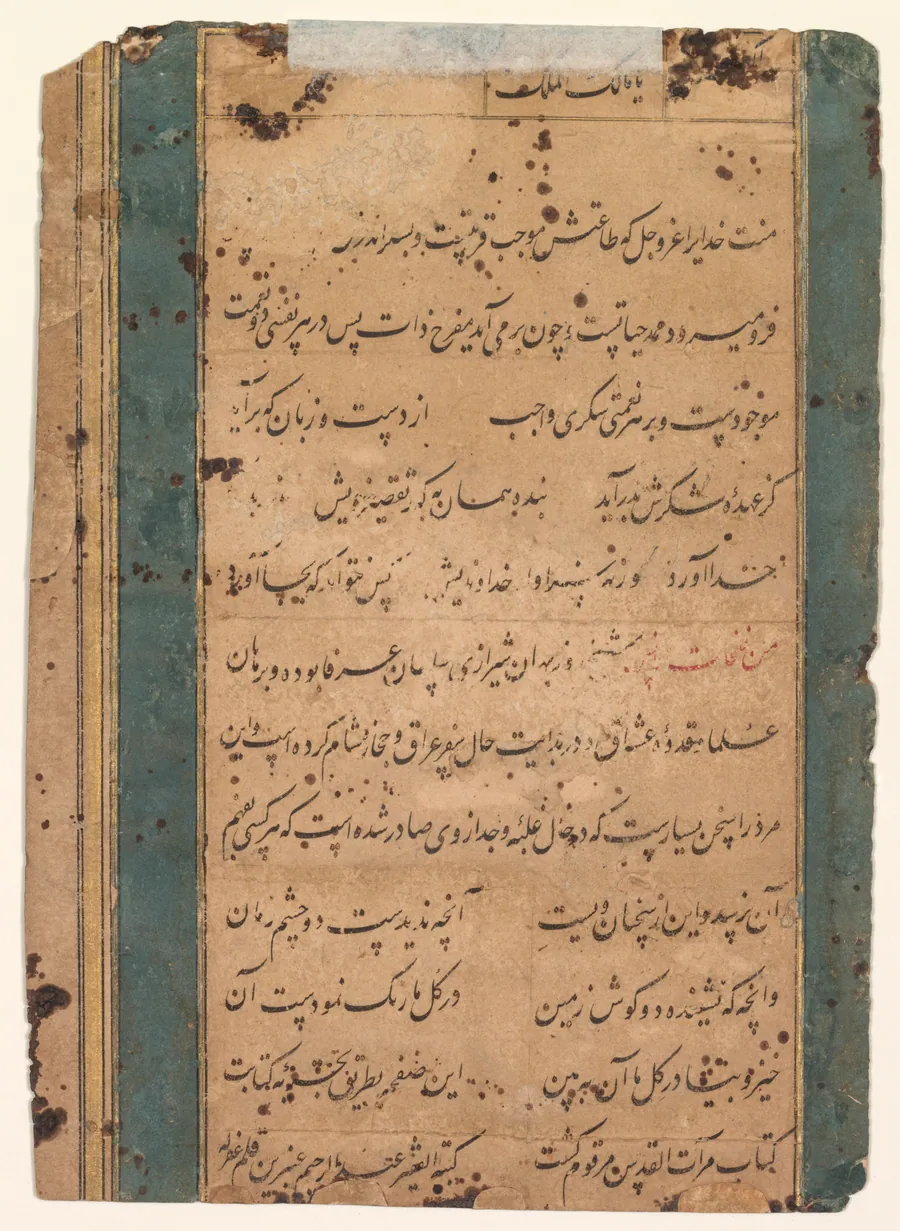 یا مالک الملک
منت خدایرا عز و جل که طاعتش موجب قربتست و بشکر اندرش
فرو میرود ممد حیاتست و چون برمی آید مفرح ذات پس در هر نفسی دو نعمت
موجودست و بر هر نعمتی شکری واجب از دست و زبان که برآید
کز عهدهٔ شکرش بدر آید بنده همان به که ز تقصیر خویش
خدا آورد ورنه سزاوار خداوندیش کس نتواند که بجا آورد
من نفحات شیرازی سلطان عرفا بوده و برهان
علما و قدوهٔ عشاق در بدایت حال سفر عراق و حجاز و شام کرده است و این
مرد را سخن بسیارست که در حال غلبهٔ وجد از وی صادر شده است که هر کسی بفهم
آن نرسد و این از سخنان ویست آنچه ندیدست دو چشم زمان
وانچه که نشنیده دو گوش زمین در گل ما رنگ نمودست آن
خیز و بیا در گل ما آن ببین این صفحه بطریق کتابت
کتاب مرآت القدس مرقوم گشت کتبه عبدالرحیم عنبرین قلم غفر له